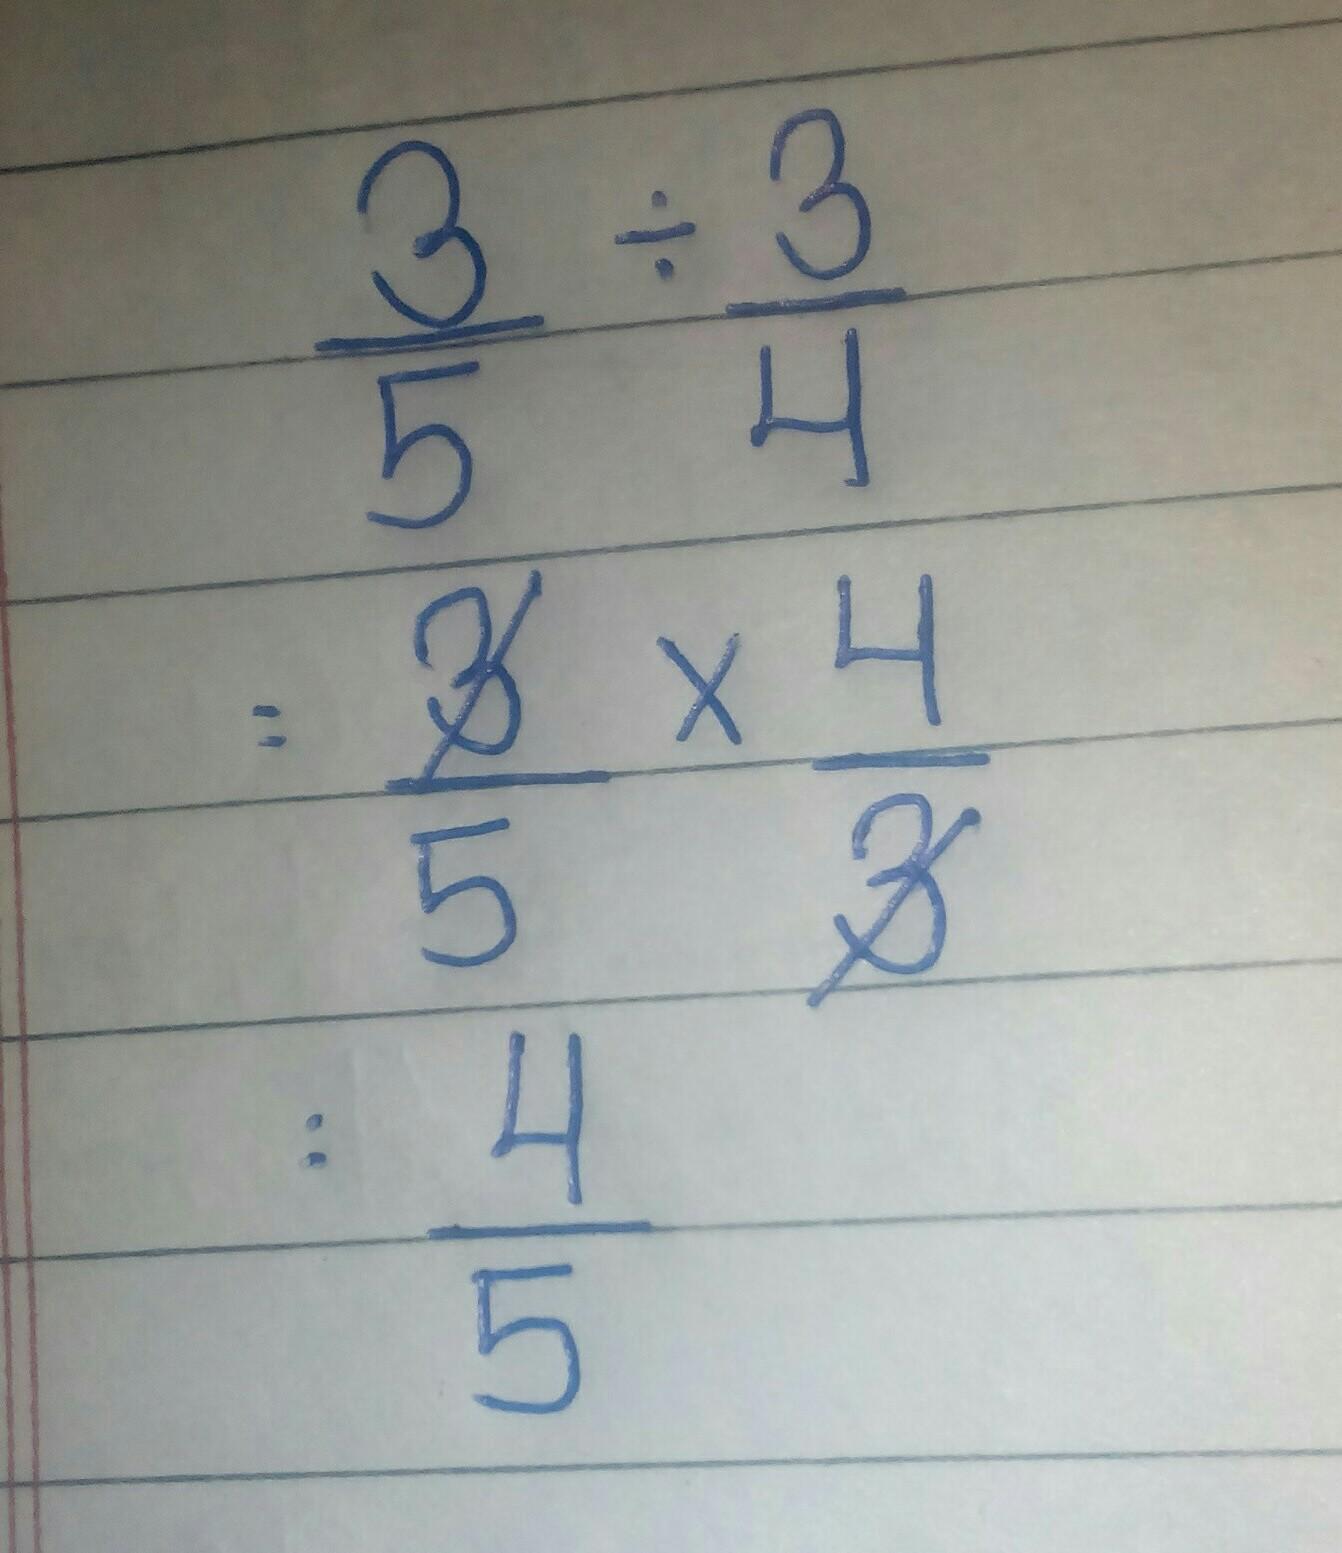 3/5 ÷ 3/4
= 3/5 x 4/3
= 4/5